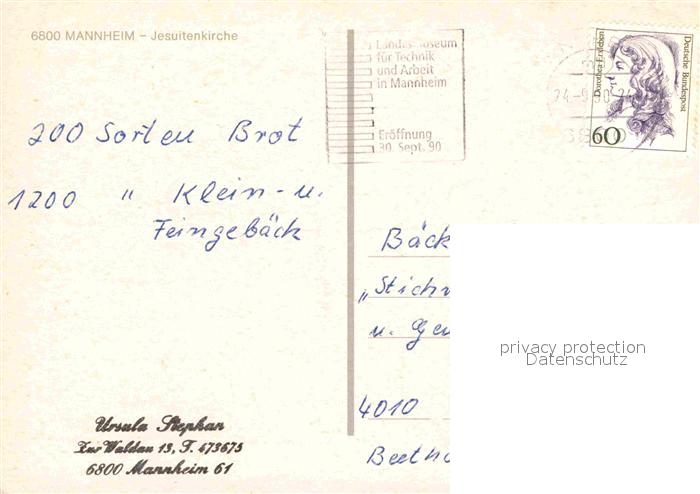 6800 MANNHEIM – Jesuitenkirche
Landesmuseum
für Technik
und Arbeit
in Mannheim
Eröffnung
30. Sept. 90
Deutsche Bundespost
Dorothea Erxleben
60
24.-9.90
200 Sorten Brot
1200 " Klein- u.
Feingebäck
Bäck
„Stich
u. Ge
4010
Beeth
privacy protection
Datenschutz
Ursula Stephan
Zur Waldau 13, T. 473675
6800 Mannheim 61